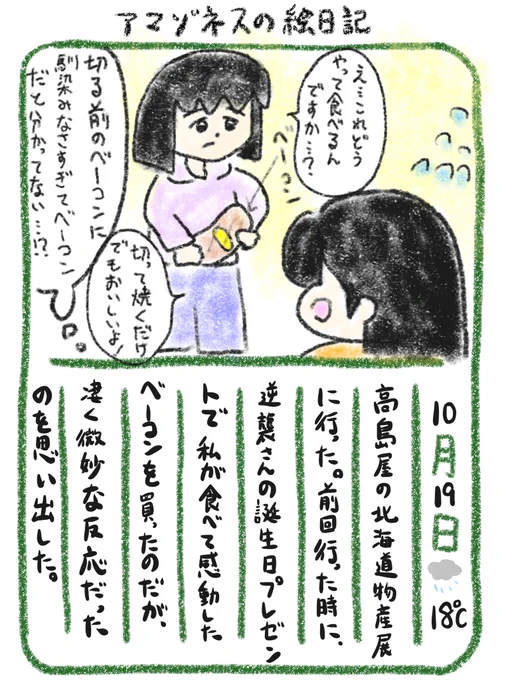 アマゾネスの絵日記
え…これどう
やって食べるん
ですか…?
ベーコン
切って焼くだけ
でもおいしいよ!
切る前のベーコンに
馴染みなさすぎてベーコン
だと分かってない…!?
10月19日
18℃
高島屋の北海道物産展
に行った。前回行った時に、
逆襲さんの誕生日プレゼン
トで私が食べて感動した
ベーコンを買ったのだが、
凄く微妙な反応だった
のを思い出した。